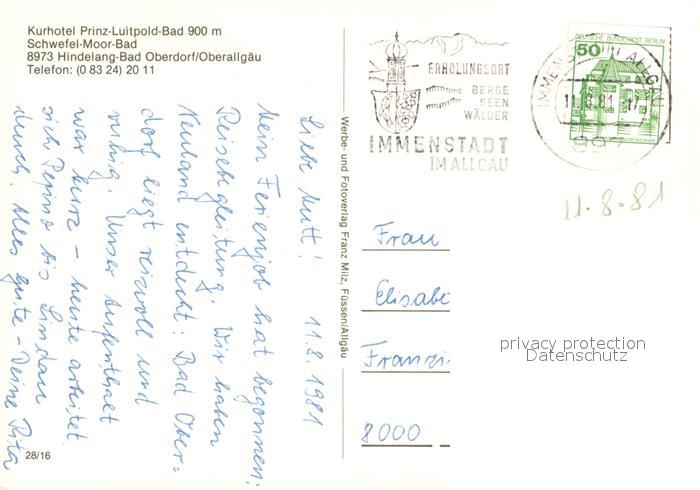 Kurhotel Prinz-Luitpold-Bad 900 m
Schwefel-Moor-Bad
8973 Hindelang-Bad Oberdorf/Oberallgäu
Telefon: (0 83 24) 20 11
Liebe Mutti! 11.8.1981
Mein Ferienjob hat begonnen:
Reisebegleitung. Wir haben
Neuland entdeckt: Bad Ober-
dorf liegt reizvoll und
ruhig. Unser Aufenthalt
war kurz – heute arbeitet
sich Pepino bis Lindau
durch. Alles Gute – Deine Rita
28/16
Werbe- und Fotoverlag Franz Milz, Füssen/Allgäu
ERHOLUNGSORT
BERGE
SEEN
WÄLDER
IMMENSTADT
IM ALLGÄU
DEUTSCHE BUNDESPOST BERLIN
50
IMMENSTADT ALLGÄU
11.8.81
897
11.8.81
Frau
Elisabe
Franzi
8000
privacy protection
Datenschutz